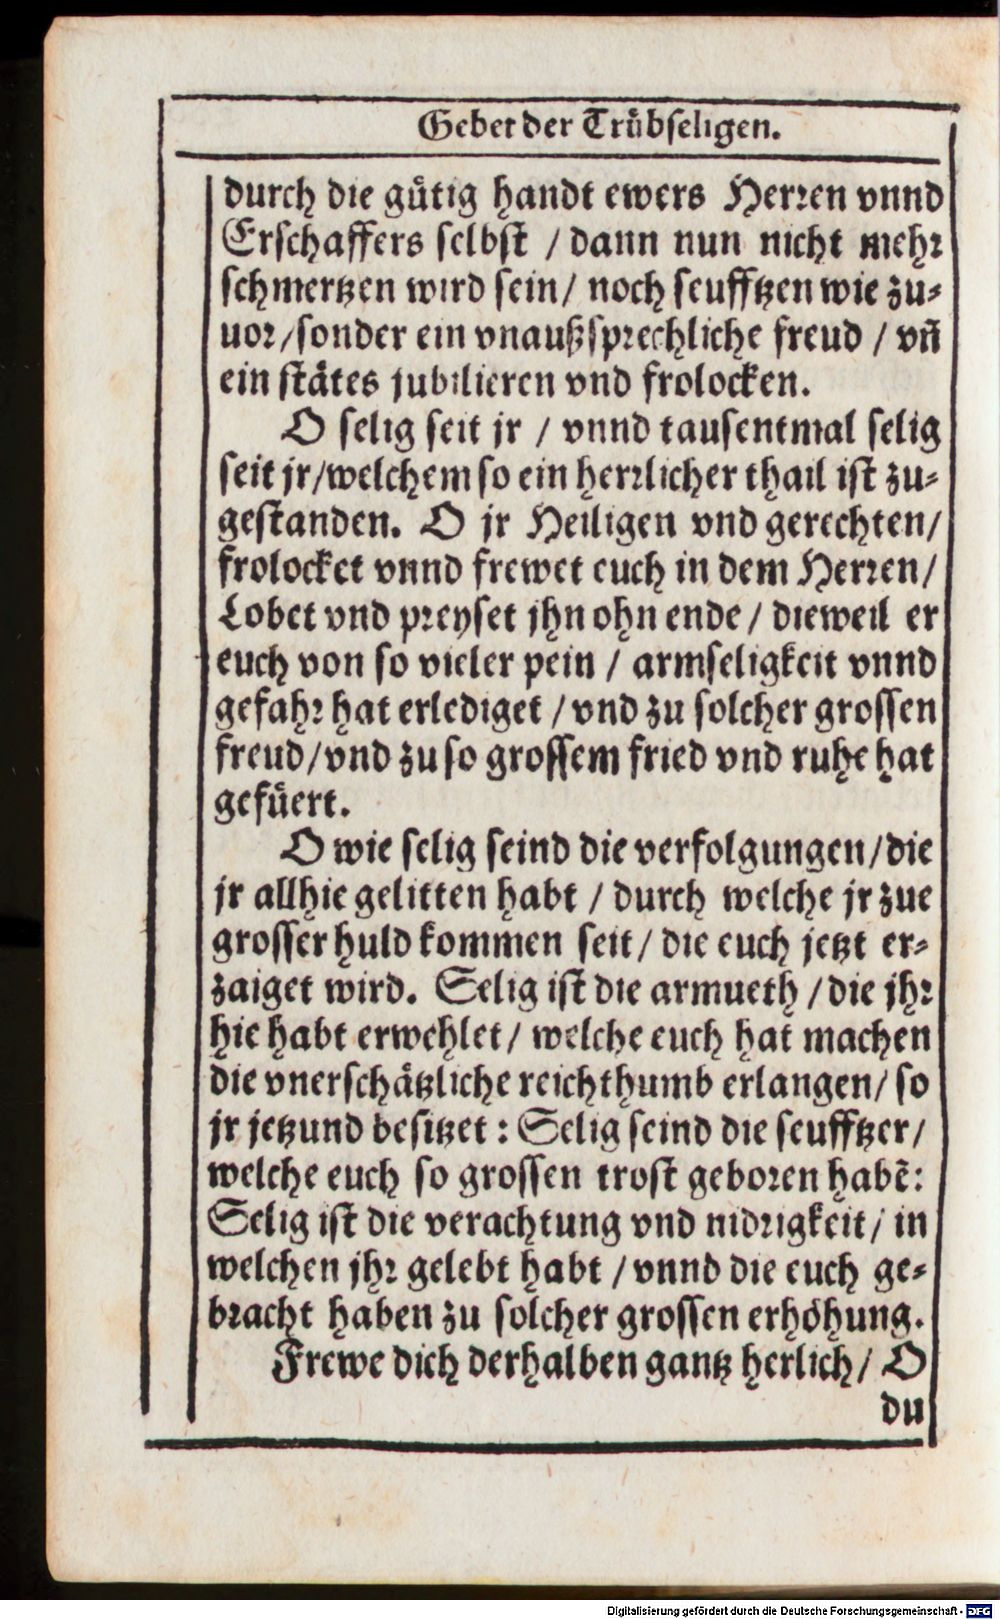 Gebet der Trübseligen.
durch die gütig handt ewers Herren vnnd
Erschaffers selbst / dann nun nicht mehr
schmertzen wird sein / noch seufftzen wie zu-
uor / sonder ein vnaußsprechliche freud / vn̄
ein stätes jubilieren vnd frolocken.
O selig seit jr / vnnd tausentmal selig
seit jr / welchem so ein herrlicher thail ist zu-
gestanden. O jr Heiligen vnd gerechten /
frolocket vnnd frewet euch in dem Herren /
Lobet vnd preyset jhn ohn ende / dieweil er
euch von so vieler pein / armseligkeit vnnd
gefahr hat erlediget / vnd zu solcher grossen
freud / vnd zu so grossem fried vnd ruhe hat
gefüert.
O wie selig seind die verfolgungen / die
jr allhie gelitten habt / durch welche jr zue
grosser huld kommen seit / die euch jetzt er-
zaiget wird. Selig ist die armueth / die jhr
hie habt erwehlet / welche euch hat machen
die vnerschätzliche reichthumb erlangen / so
jr jetzund besitzet : Selig seind die seufftzer /
welche euch so grossen trost geboren habē:
Selig ist die verachtung vnd nidrigkeit / in
welchen jhr gelebt habt / vnnd die euch ge-
bracht haben zu solcher grossen erhöhung.
Frewe dich derhalben gantz herlich / O
du
Digitalisierung gefördert durch die Deutsche Forschungsgemeinschaft - DFG